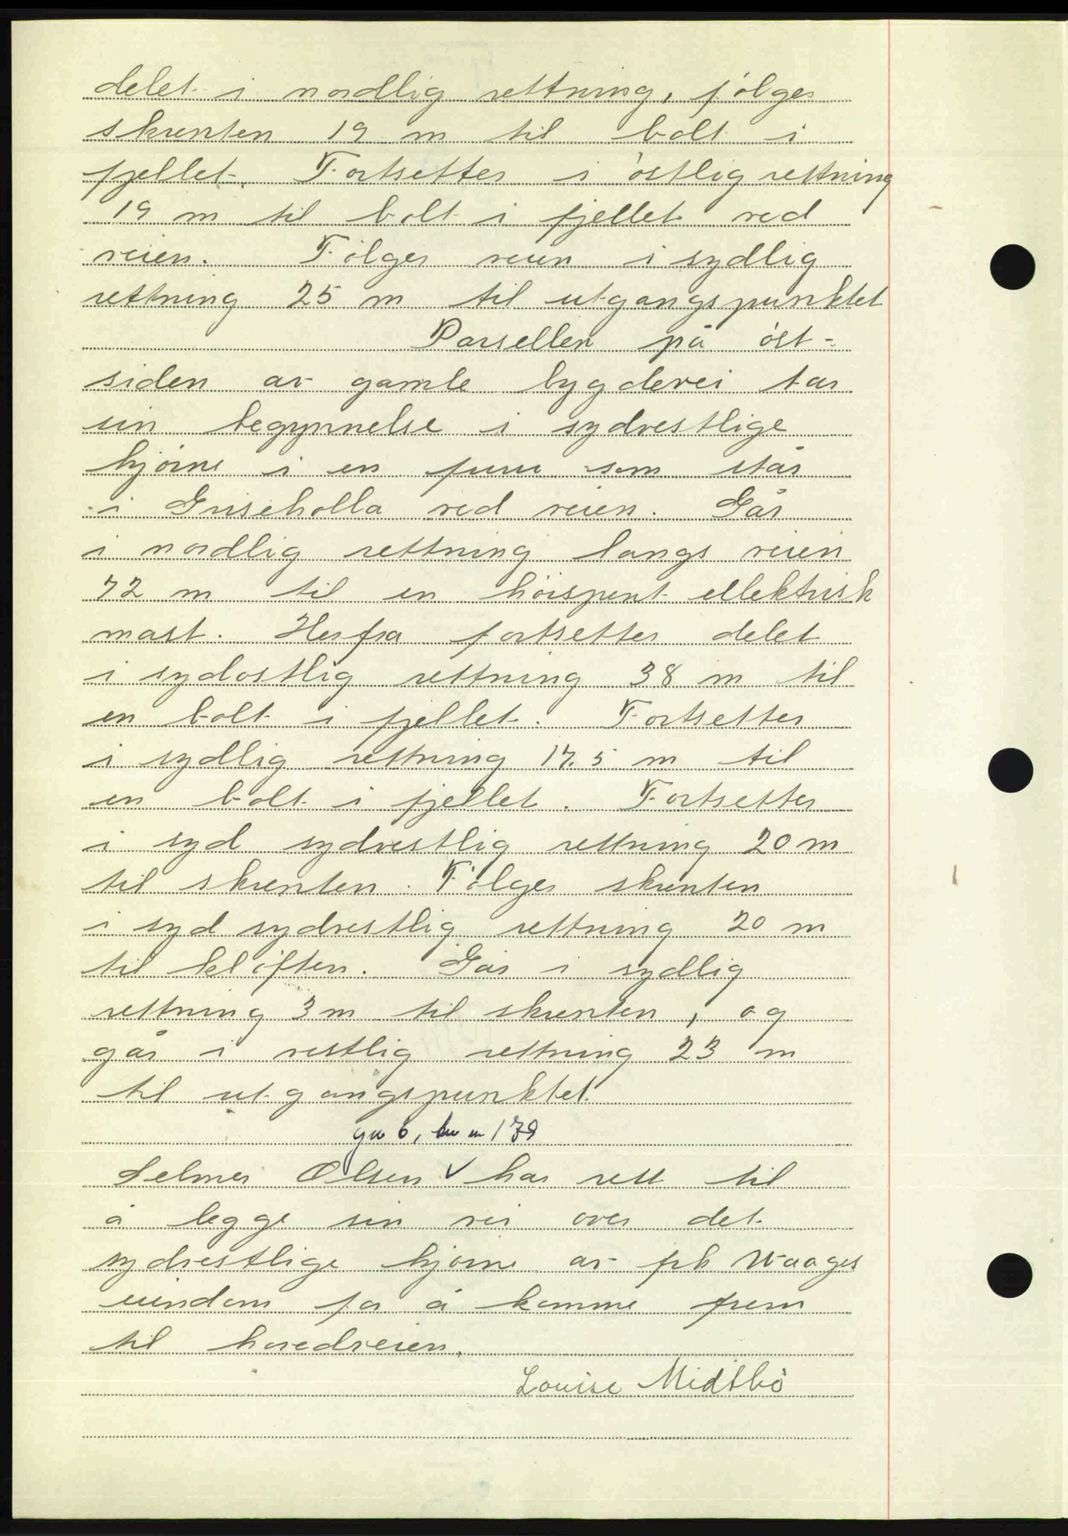 delet i nordlig rettning, følges
skrenten 19 m til bolt i
fjellet. Fortsetter i östlig rettning
19 m til bolt i fjellet ved
veien. Fölger veien i sydlig
rettning 25 m til utgangspunktet
Parsellen på öst-
siden av gamle bygdevei tar
sin begynnelse i sydvestlige
hjörne i en furu som står
i Griseholla ved veien. Går
i nordlig rettning langs veien
72 m til en höispent ellektrisk
mast. Herfra fortsetter delet
i sydostlig rettning 38 m til
en bolt i fjellet. Fortsetter
i sydlig rettning 17.5 m til
en bolt i fjellet. Fortsetter
i syd sydvestlig rettning 20 m
til skrenten. Fölger skrenten
i syd sydvestlig rettning 20 m
til klöften. Går i sydlig
rettning 3 m til skrenten, og
går i vestlig rettning 23 m
til utgangspunktet.
gnr 6, bnr 179
Selmer Olsen ✓ har rett til
å legge sin vei over det
sydvestlige hjörne av frk Waages
eiendom for å komme frem
til hovedveien.
Louise Midtbö